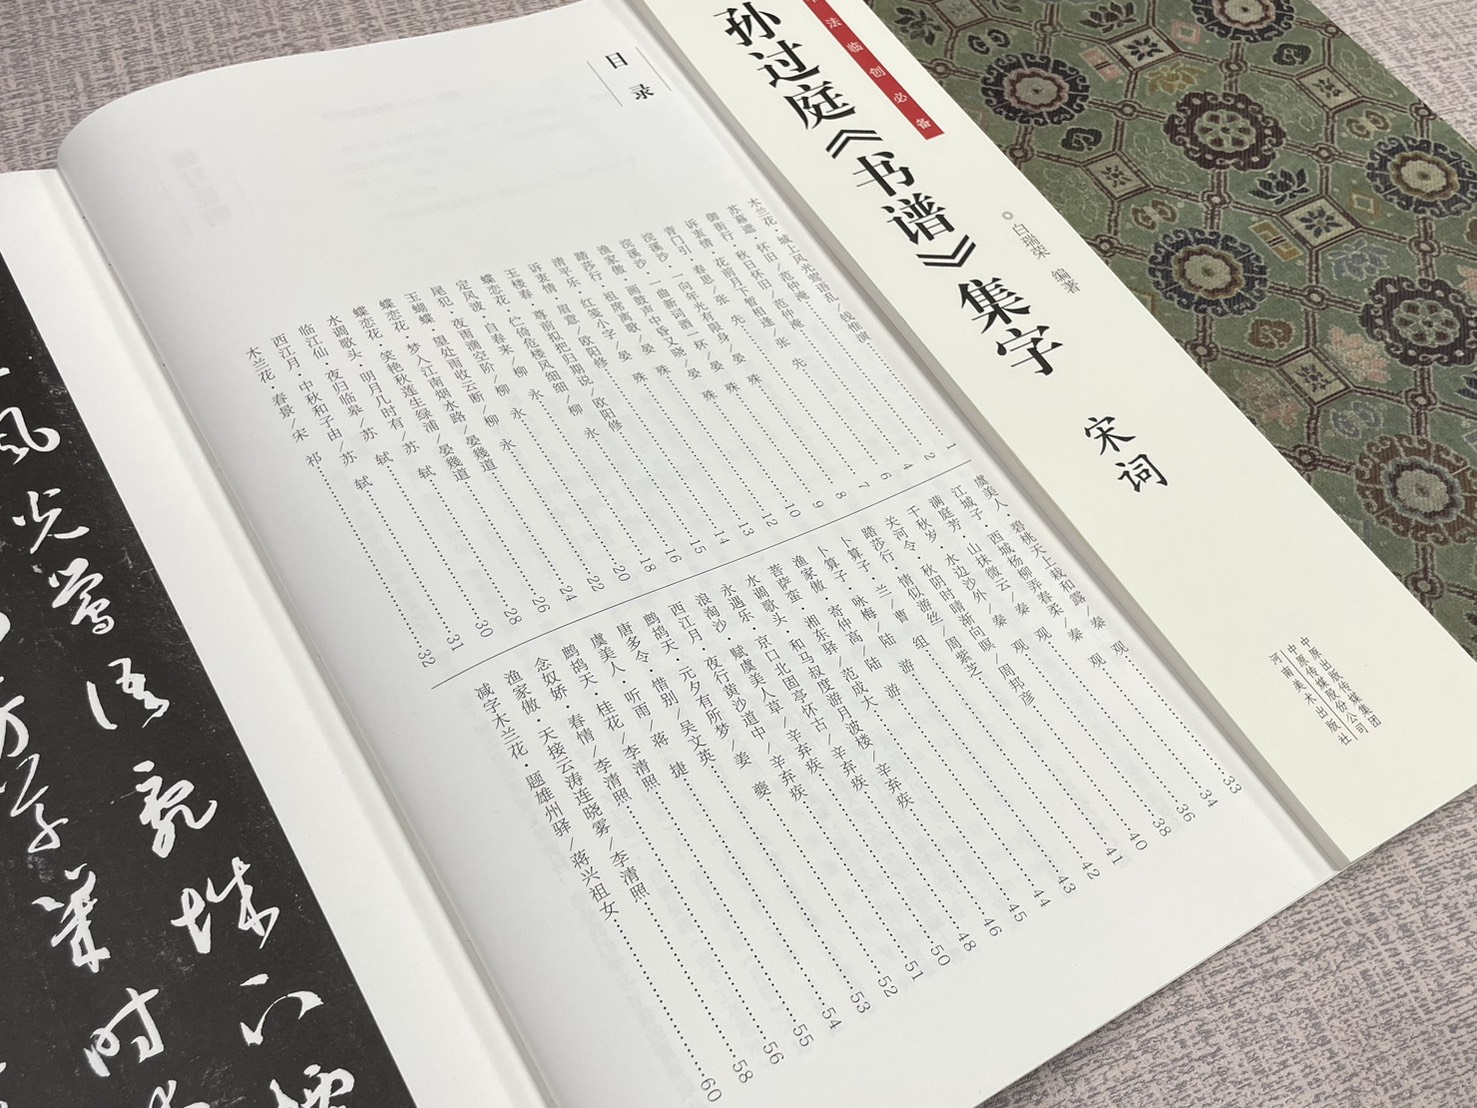 法临创必备
孙过庭《书谱》集字 宋词
◎白瑞荣 编著
中原出版传媒集团
中原传媒股份公司
河南美术出版社
目录
木兰花·城上风光莺语乱/钱惟演 1
苏幕遮·怀旧/范仲淹 2
御街行·秋日怀旧/范仲淹 4
诉衷情·花前月下暂相逢/张 先 6
青门引·春思/张 先 7
浣溪沙·一向年光有限身/晏 殊 8
浣溪沙·一曲新词酒一杯/晏 殊 9
渔家傲·画鼓声中昏又晓/晏 殊 10
踏莎行·祖席离歌/晏 殊 12
清平乐·红笺小字/晏 殊 13
诉衷情·眉意/欧阳修 14
玉楼春·尊前拟把归期说/欧阳修 15
蝶恋花·伫倚危楼风细细/柳 永 16
定风波·自春来/柳 永 18
尾犯·夜雨滴空阶/柳 永 20
玉蝴蝶·望处雨收云断/柳 永 22
蝶恋花·梦入江南烟水路/晏幾道 24
蝶恋花·笑艳秋莲生绿浦/晏幾道 26
水调歌头·明月几时有/苏 轼 28
临江仙·夜归临皋/苏 轼 30
西江月·中秋和子由/苏 轼 31
木兰花·春景/宋 祁 32
虞美人·碧桃天上栽和露/秦 观 33
江城子·西城杨柳弄春柔/秦 观 34
满庭芳·山抹微云/秦 观 36
千秋岁·水边沙外/秦 观 38
关河令·秋阴时晴渐向暝/周邦彦 40
踏莎行·情似游丝/周紫芝 41
卜算子·兰/曹 组 42
卜算子·咏梅/陆 游 43
渔家傲·寄仲高/陆 游 44
菩萨蛮·湘东驿/范成大 45
水调歌头·和马叔度游月波楼/辛弃疾 46
永遇乐·京口北固亭怀古/辛弃疾 48
浪淘沙·赋虞美人草/辛弃疾 50
西江月·夜行黄沙道中/辛弃疾 51
鹧鸪天·元夕有所梦/姜 夔 52
唐多令·惜别/吴文英 53
虞美人·听雨/蒋 捷 54
鹧鸪天·桂花/李清照 55
念奴娇·春情/李清照 56
渔家傲·天接云涛连晓雾/李清照 58
减字木兰花·题雄州驿/蒋兴祖女 60
风光莺语乱城下烟
芳草几时